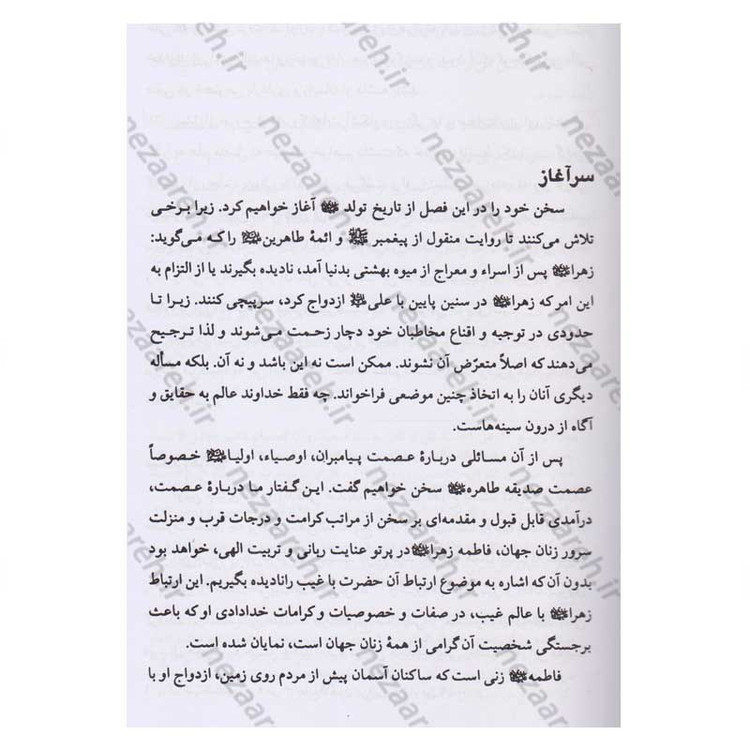 سرآغاز
سخن خود را در این فصل از تاریخ تولد آغاز خواهیم کرد. زیرا برخی
تلاش می‌کنند تا روایت منقول از پیغمبر ﷺ و ائمهٔ طاهرین را که می‌گوید:
زهرا پس از اسراء و معراج از میوه بهشتی بدنیا آمد، نادیده بگیرند یا از التزام به
این امر که زهرا در سنین پایین با علی ازدواج کرد، سرپیچی کنند. زیرا تا
حدودی در توجیه و اقناع مخاطبان خود دچار زحمت می‌شوند و لذا ترجیح
می‌دهند که اصلاً متعرّض آن نشوند. ممکن است نه این باشد و نه آن. بلکه مسأله
دیگری آنان را به اتخاذ چنین موضعی فراخواند. چه فقط خداوند عالم به حقایق و
آگاه از درون سینه‌هاست.
پس از آن مسائلی دربارهٔ عصمت پیامبران، اوصیاء، اولیا خصوصاً
عصمت صدیقه طاهره سخن خواهیم گفت. این گفتار ما دربارهٔ عصمت،
درآمدی قابل قبول و مقدمه‌ای بر سخن از مراتب کرامت و درجات قرب و منزلت
سرور زنان جهان، فاطمه زهرا در پرتو عنایت ربانی و تربیت الهی، خواهد بود
بدون آن که اشاره به موضوع ارتباط آن حضرت با غیب را نادیده بگیریم. این ارتباط
زهرا با عالم غیب، در صفات و خصوصیات و کرامات خدادادی او که باعث
برجستگی شخصیت آن گرامی از همهٔ زنان جهان است، نمایان شده است.
فاطمه زنی است که ساکنان آسمان پیش از مردم روی زمین، ازدواج او با
nezaareh.ir